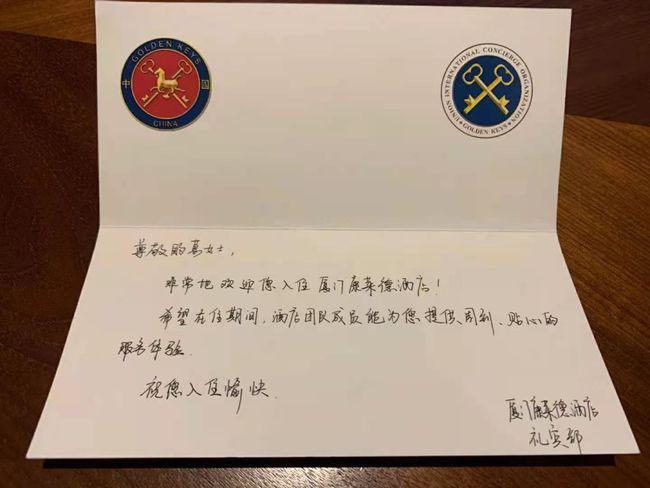 GOLDEN KEYS
中 国
CHINA
UNION INTERNATIONAL CONCIERGE ORGANIZATION
GOLDEN KEYS
尊敬的葛女士,
非常地欢迎您入住厦门康莱德酒店!
希望在住期间,酒店团队成员能为您提供周到、贴心的
服务体验.
祝您入住愉快.
厦门康莱德酒店
礼宾部